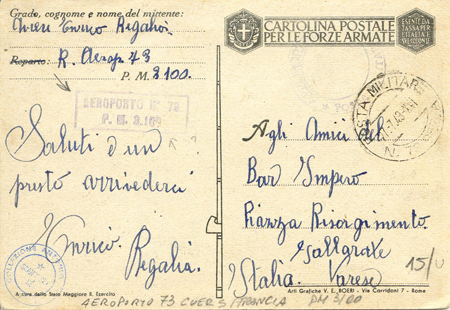 Grado, cognome e nome del mittente:
Enrico Regalia
Reparto: R. Aerop. 73
P. M. 3100.
AEROPORTO N° 73
P. M. 3.100
Saluti d'un
presto arrivederci
Enrico Regalia
A cura dello Stato Maggiore R. Esercito
CARTOLINA POSTALE
PER LE FORZE ARMATE
ESENTE DA
TASSA PER
L'ITALIA E
POSTA MILITARE
Agli Amici del
Bar Impero
Piazza Risorgimento.
Gallarate
Italia. Varese
15/U
Arti Grafiche V. E. BOERI - Via Corridoni 7 - Roma
AEROPORTO 73 CUERS FRANCIA PM 3100